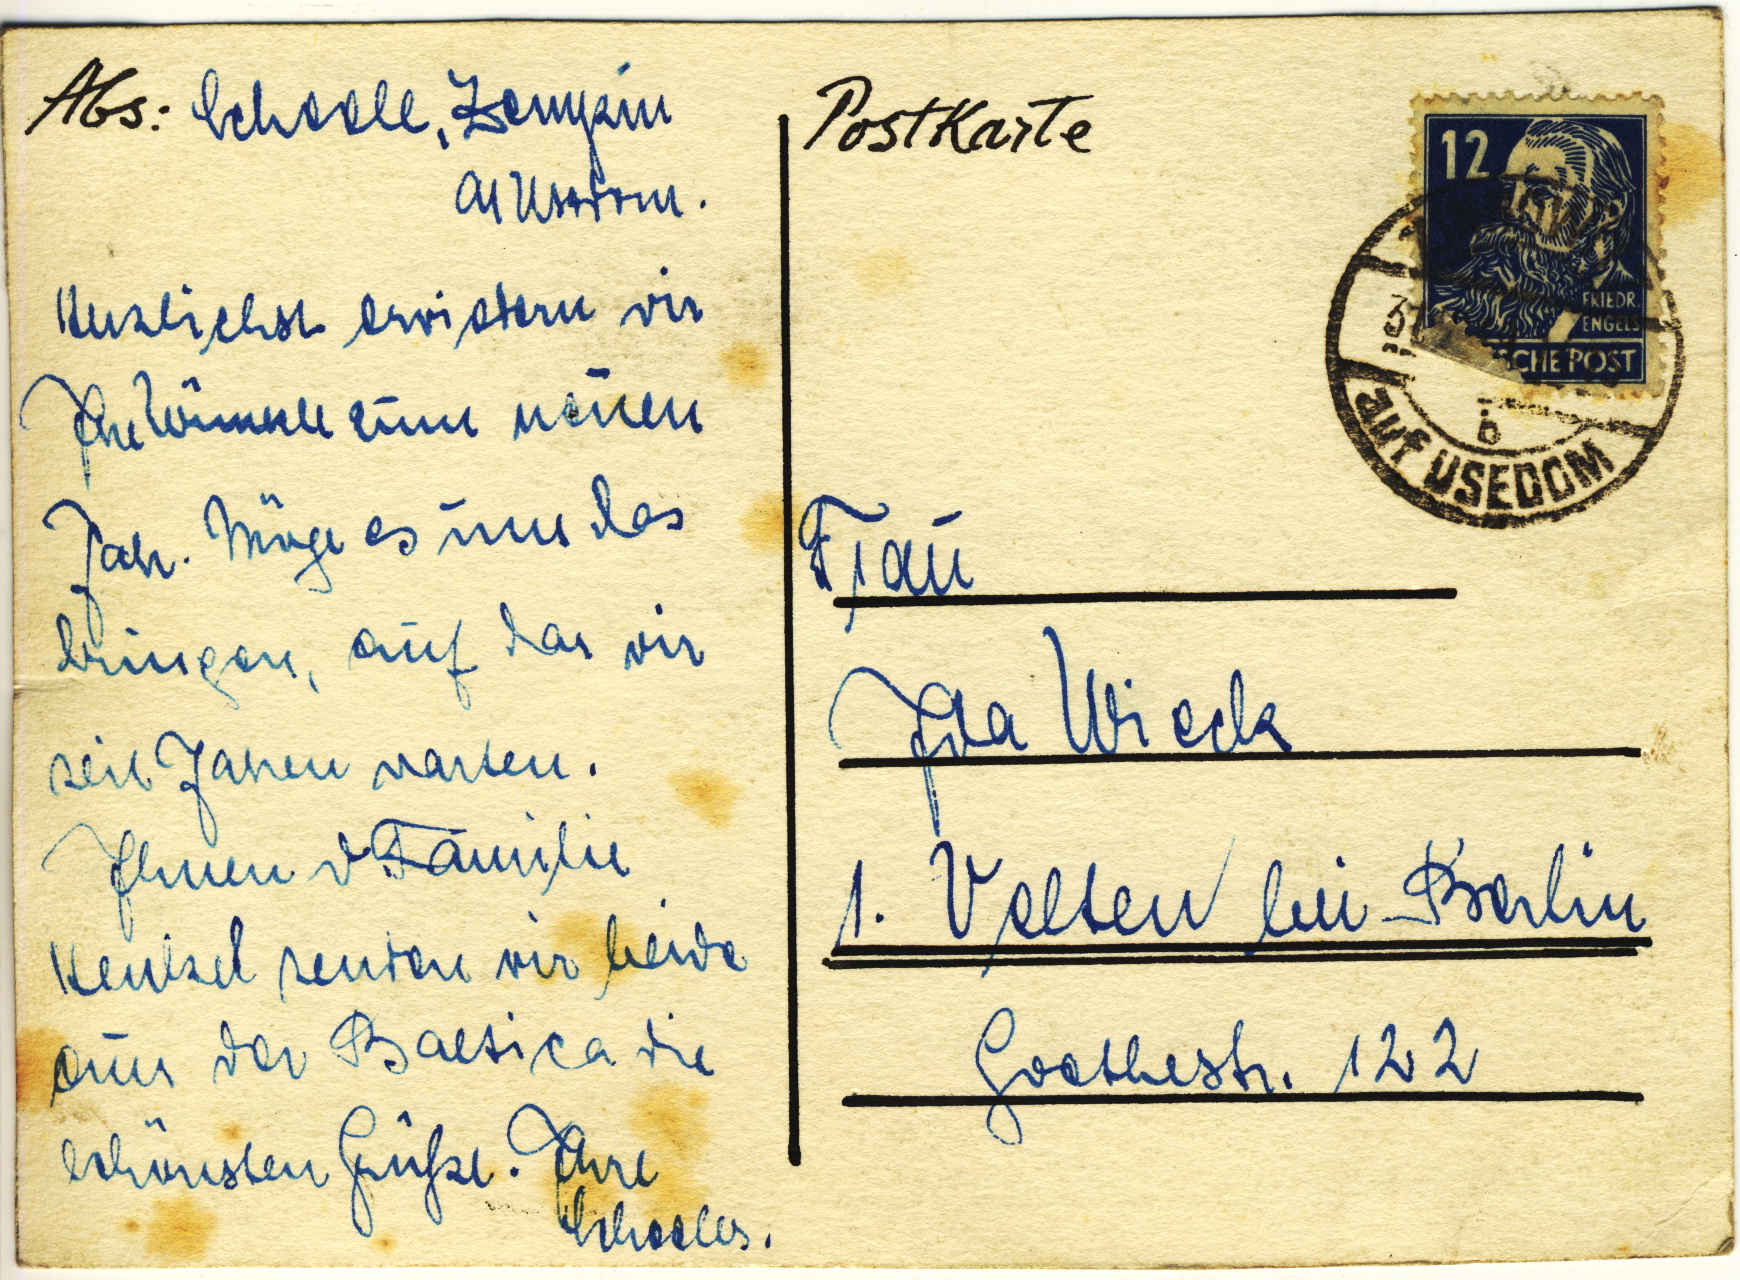 Abs: Schoele, Zempin
a/ Usedom.
Herzlichst erwidern wir
Ihre Wünsche zum neuen
Jahr. Möge es uns das
bringen, auf das wir
seit Jahren warten.
Ihnen u Familie
Hentzel senden wir beide
aus der Baltica die
schönsten Grüße. Ihre
Schoeles.
Postkarte
12
FRIEDR.
ENGELS
SCHE POST
3
b
auf USEDOM
Frau
Ida Wieck
1. Velten bei Berlin
Goethestr. 122